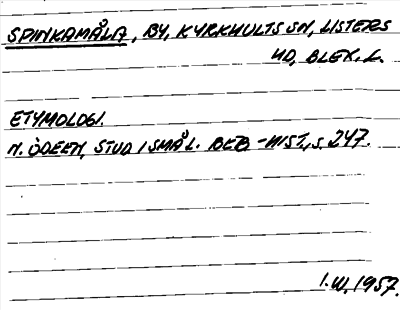 SPINKAMÅLA, BY, KYRKHULTS SN, LISTERS
HD, BLEK. L.
ETYMOLOGI.
N. ÖDEEN, STUD I SMÅL. BEB-HIST., S. 247.
1.VI.1957.